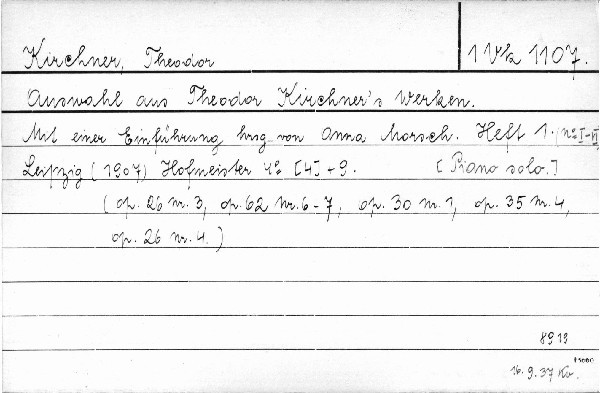 Kirchner, Theodor
1 Vk 1107.
Auswahl aus Theodor Kirchner's Werken.
Mit einer Einführung hrsg von Anna Morsch. Heft 1. (No I-VI)
Leipzig (1907) Hofmeister 4o [4] + 9. [Piano solo.]
(op. 26 nr. 3, op. 62 nr. 6-7, op. 30 nr. 1, op. 35 nr. 4,
op. 26 nr. 4.)
8919
16. 9. 37 Kv.